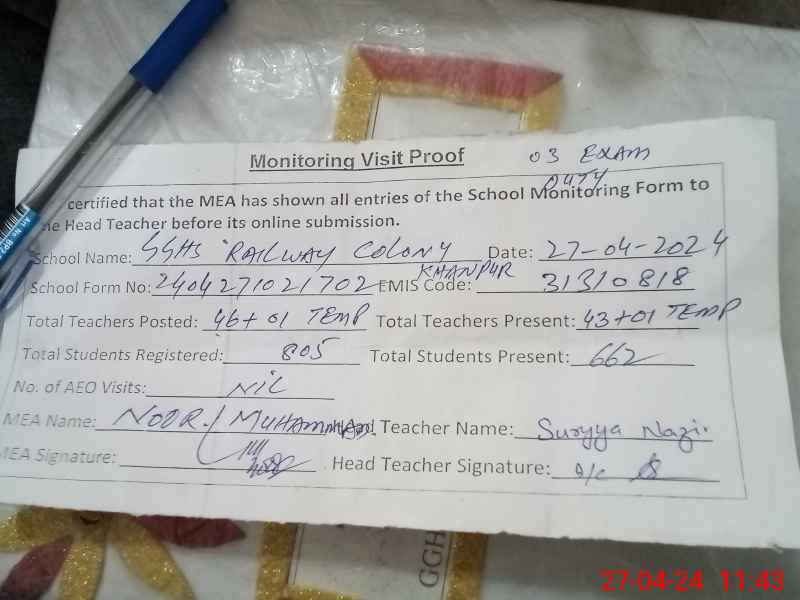 Monitoring Visit Proof 03 EXAM
DUTY
certified that the MEA has shown all entries of the School Monitoring Form to
Head Teacher before its online submission.
School Name: GGHS RAILWAY COLONY Date: 27-04-2024
KHANPUR
School Form No: 2404271021702 EMIS Code: 31310818
Total Teachers Posted: 46+01 TEMP Total Teachers Present: 43+01 TEMP
Total Students Registered: 805 Total Students Present: 662
No. of AEO Visits: NIL
MEA Name: NOOR MUHAMMAD Head Teacher Name: Suryya Nazir
MEA Signature: Head Teacher Signature: O/C
GGH
27-04-24 11:43